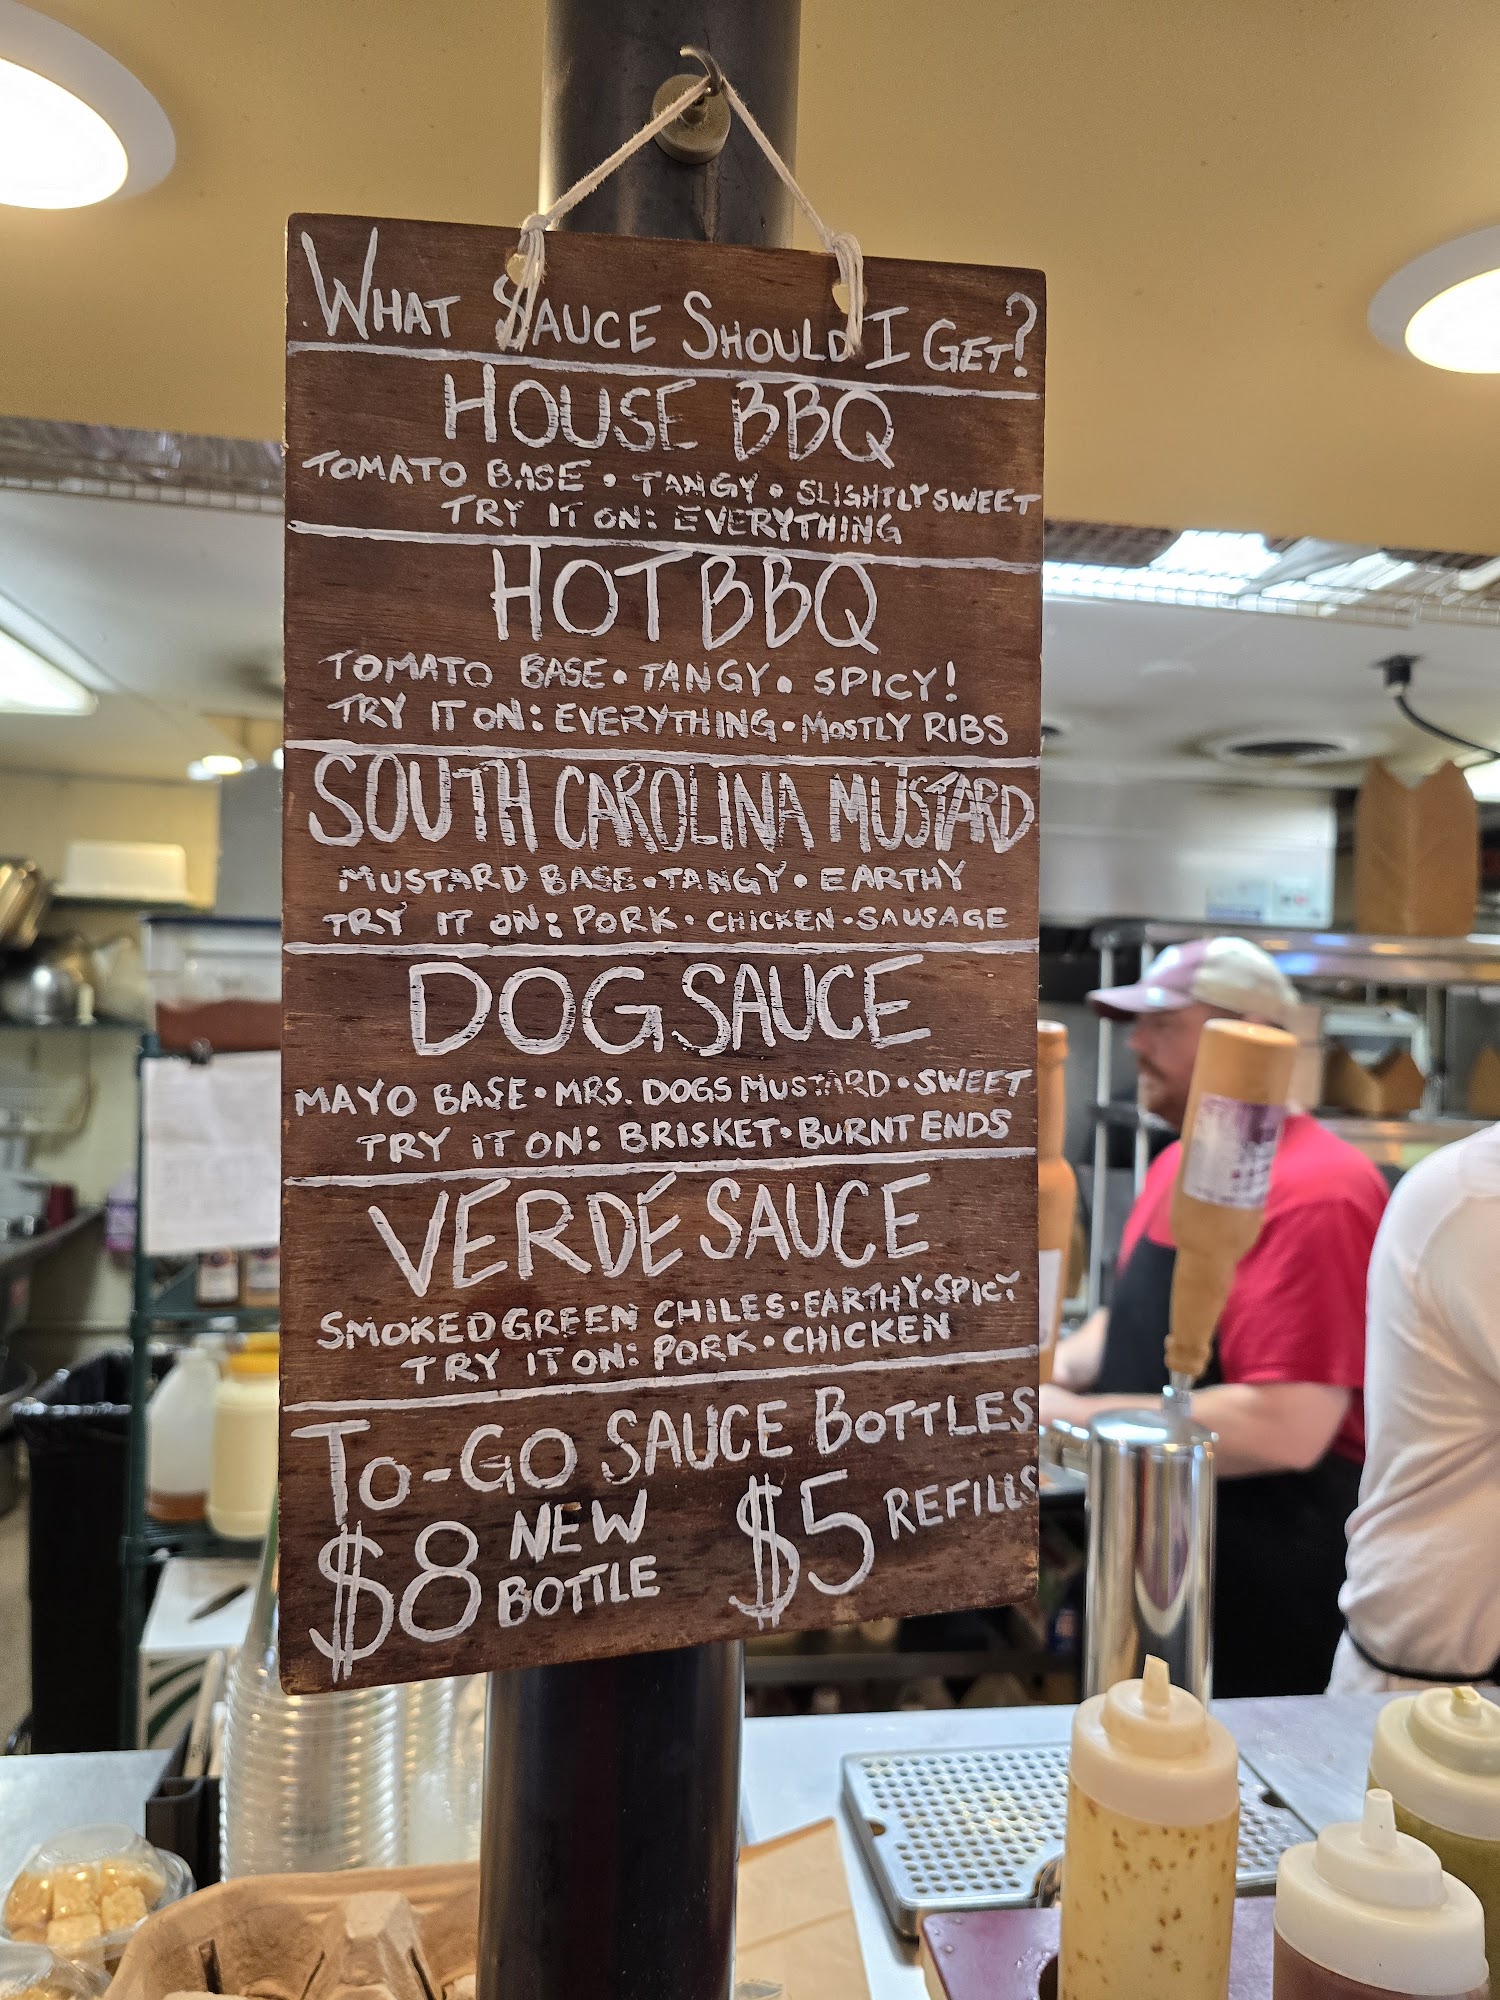 WHAT SAUCE SHOULD I GET?
HOUSE BBQ
TOMATO BASE • TANGY • SLIGHTLY SWEET
TRY IT ON: EVERYTHING
HOT BBQ
TOMATO BASE • TANGY • SPICY!
TRY IT ON: EVERYTHING • MOSTLY RIBS
SOUTH CAROLINA MUSTARD
MUSTARD BASE • TANGY • EARTHY
TRY IT ON: PORK • CHICKEN • SAUSAGE
DOG SAUCE
MAYO BASE • MRS. DOGS MUSTARD • SWEET
TRY IT ON: BRISKET • BURNT ENDS
VERDE SAUCE
SMOKED GREEN CHILES • EARTHY • SPICY
TRY IT ON: PORK • CHICKEN
TO-GO SAUCE BOTTLES
$8 NEW BOTTLE $5 REFILLS